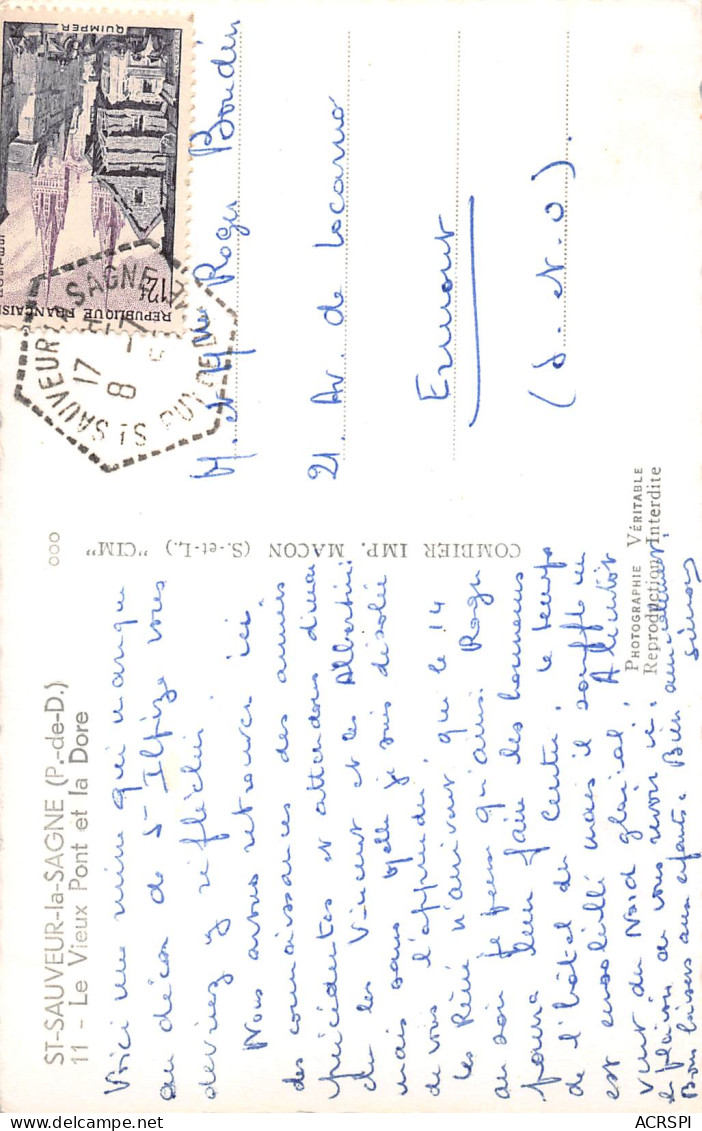 ST-SAUVEUR-la-SAGNE (P.-de-D.)
11 - Le Vieux Pont et la Dore
Voici une mine qui manque
au décor de St Ilpize vous
devriez y réfléchir.
Nous avons retrouvé ici
des connaissances des années
précédentes et attendons dimanche
les Vincent et les Albertini
mais sans Melle je suis désolée
de vous l'apprendre
les Réné n'arrivent que le 14
au soir je pense qu'ainsi Roger
pourra bien faire les honneurs
de l'hôtel du Centre. le temps
est ensoleillé mais il souffle un
vent du Nord glacial. A bientôt
le plaisir de vous revoir ici. Bien amicalement
Bons baisers aux enfants. Simon
000
COMBIER IMP. MACON (S.-et-L.) "CIM"
PHOTOGRAPHIE VÉRITABLE
Reproduction Interdite
QUIMPER
12f
REPUBLIQUE FRANÇAISE
ST SAUVEUR LA SAGNE
PUY DE DOME
17 H
8 -7
M. et Mme Roger Boudin
21. Av. de Locarno
Ermont
(S. et. O).
ACRSPI